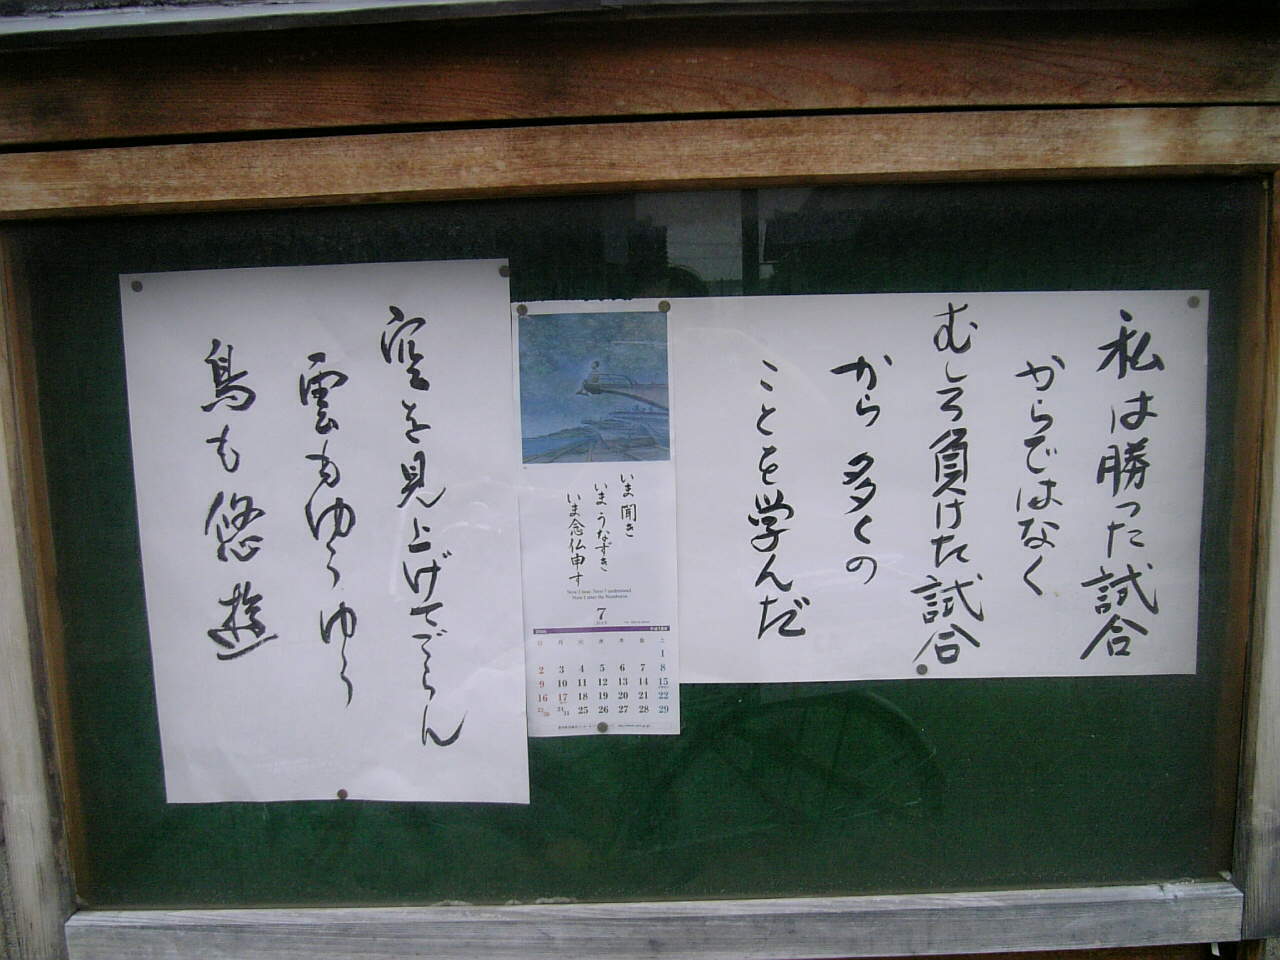 私は勝った試合
からではなく
むしろ負けた試合
から多くの
ことを学んだ
いま聞き
いまうなずき
いま念仏申す
Now I hear, Now I understand,
Now I utter the Nembutsu
7
日 月 火 水 木 金 土
1
2 3 4 5 6 7 8
9 10 11 12 13 14 15
16 17 18 19 20 21 22
23/30 24/31 25 26 27 28 29
空を見上げてごらん
雲もゆうゆう
鳥も悠遊